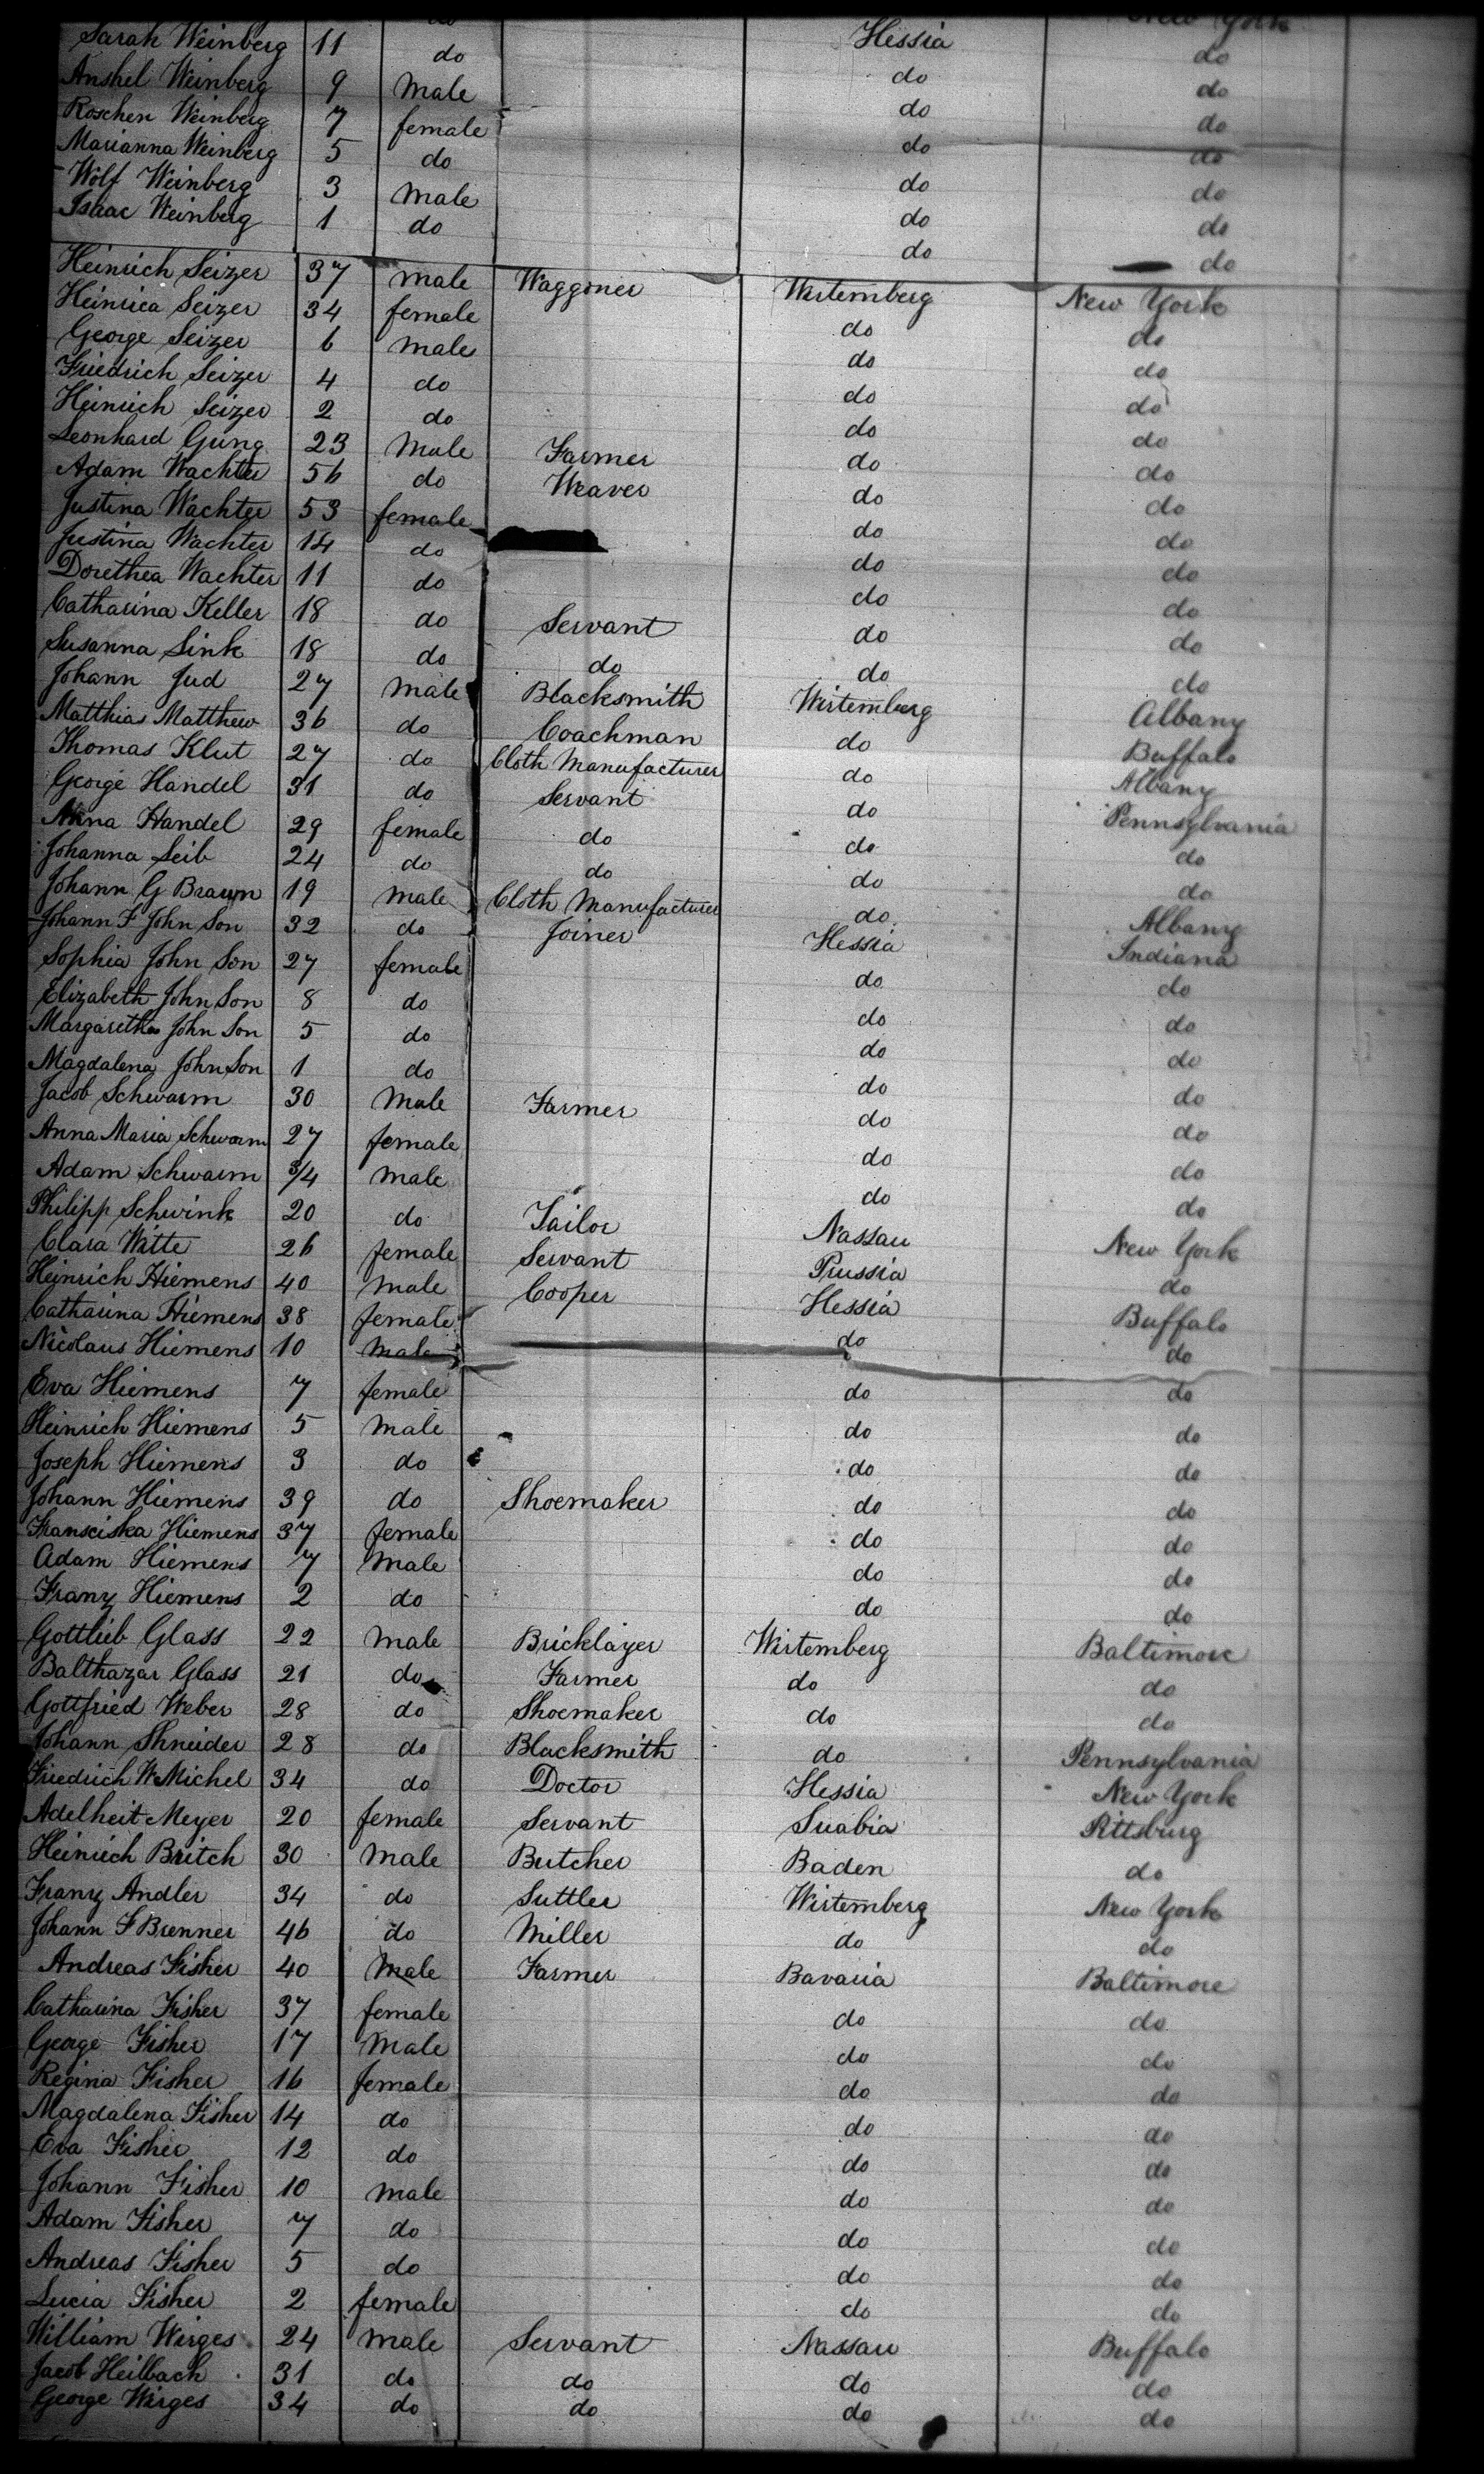 New York
Sarah Weinberg 11 do Hessia do
Anshel Weinberg 9 Male do do
Roschen Weinberg 7 female do do
Marianna Weinberg 5 do do do
Wolf Weinberg 3 Male do do
Isaac Weinberg 1 do do do
do do
Heinrich Seizer 37 Male Waggoner Wirtemberg New York
Heinrica Seizer 34 female do do
George Seizer 6 Male do do
Friedrich Seizer 4 do do do
Heinrich Seizer 2 do do do
Leonhard Gung 23 Male Farmer do do
Adam Wachter 56 do Weaver do do
Justina Wachter 53 female do do
Justina Wachter 14 do do do
Dorethea Wachter 11 do do do
Catharina Keller 18 do Servant do do
Susanna Sink 18 do do do do
Johann Jud 27 Male Blacksmith Wirtemberg Albany
Matthias Matthew 36 do Coachman do Buffalo
Thomas Klut 27 do Cloth Manufacturer do Albany
George Handel 31 do Servant do Pennsylvania
Anna Handel 29 female do do do
Johanna Seib 24 do do do do
Johann G Braun 19 Male Cloth Manufacturer do Albany
Johann F John Son 32 do Joiner Hessia Indiana
Sophia John Son 27 female do do
Elizabeth John Son 8 do do do
Margaretha John Son 5 do do do
Magdalena John Son 1 do do do
Jacob Schwarm 30 Male Farmer do do
Anna Maria Schwarm 27 female do do
Adam Schwarm 3/4 Male do do
Philipp Schwink 20 do Tailor Nassau New York
Clara Witte 26 female Servant Prussia do
Heinrich Hiemens 40 Male Cooper Hessia Buffalo
Catharina Hiemens 38 female do do
Nicolaus Hiemens 10 Male
Eva Hiemens 7 female do do
Heinrich Hiemens 5 Male do do
Joseph Hiemens 3 do do do
Johann Hiemens 39 do Shoemaker do do
Fransciska Hiemens 37 female do do
Adam Hiemens 7 Male do do
Franz Hiemens 2 do do do
Gottlieb Glass 22 Male Bricklayer Wirtemberg Baltimore
Balthazar Glass 21 do Farmer do do
Gottfried Weber 28 do Shoemaker do do
Johann Shneider 28 do Blacksmith do Pennsylvania
Friedrich W Michel 34 do Doctor Hessia New York
Adelheit Meyer 20 female Servant Suabia Pittsburg
Heinrich Britch 30 Male Butcher Baden do
Franz Andler 34 do Suttler Wirtemberg New York
Johann F Brenner 46 do Miller do do
Andreas Fisher 40 Male Farmer Bavaria Baltimore
Catharina Fisher 37 female do do
George Fisher 17 Male do do
Regina Fisher 16 female do do
Magdalena Fisher 14 do do do
Eva Fisher 12 do do do
Johann Fisher 10 Male do do
Adam Fisher 7 do do do
Andreas Fisher 5 do do do
Lucia Fisher 2 female do do
William Wirges 24 Male Servant Nassau Buffalo
Jacob Heilbach 31 do do do do
George Wirges 34 do do do do